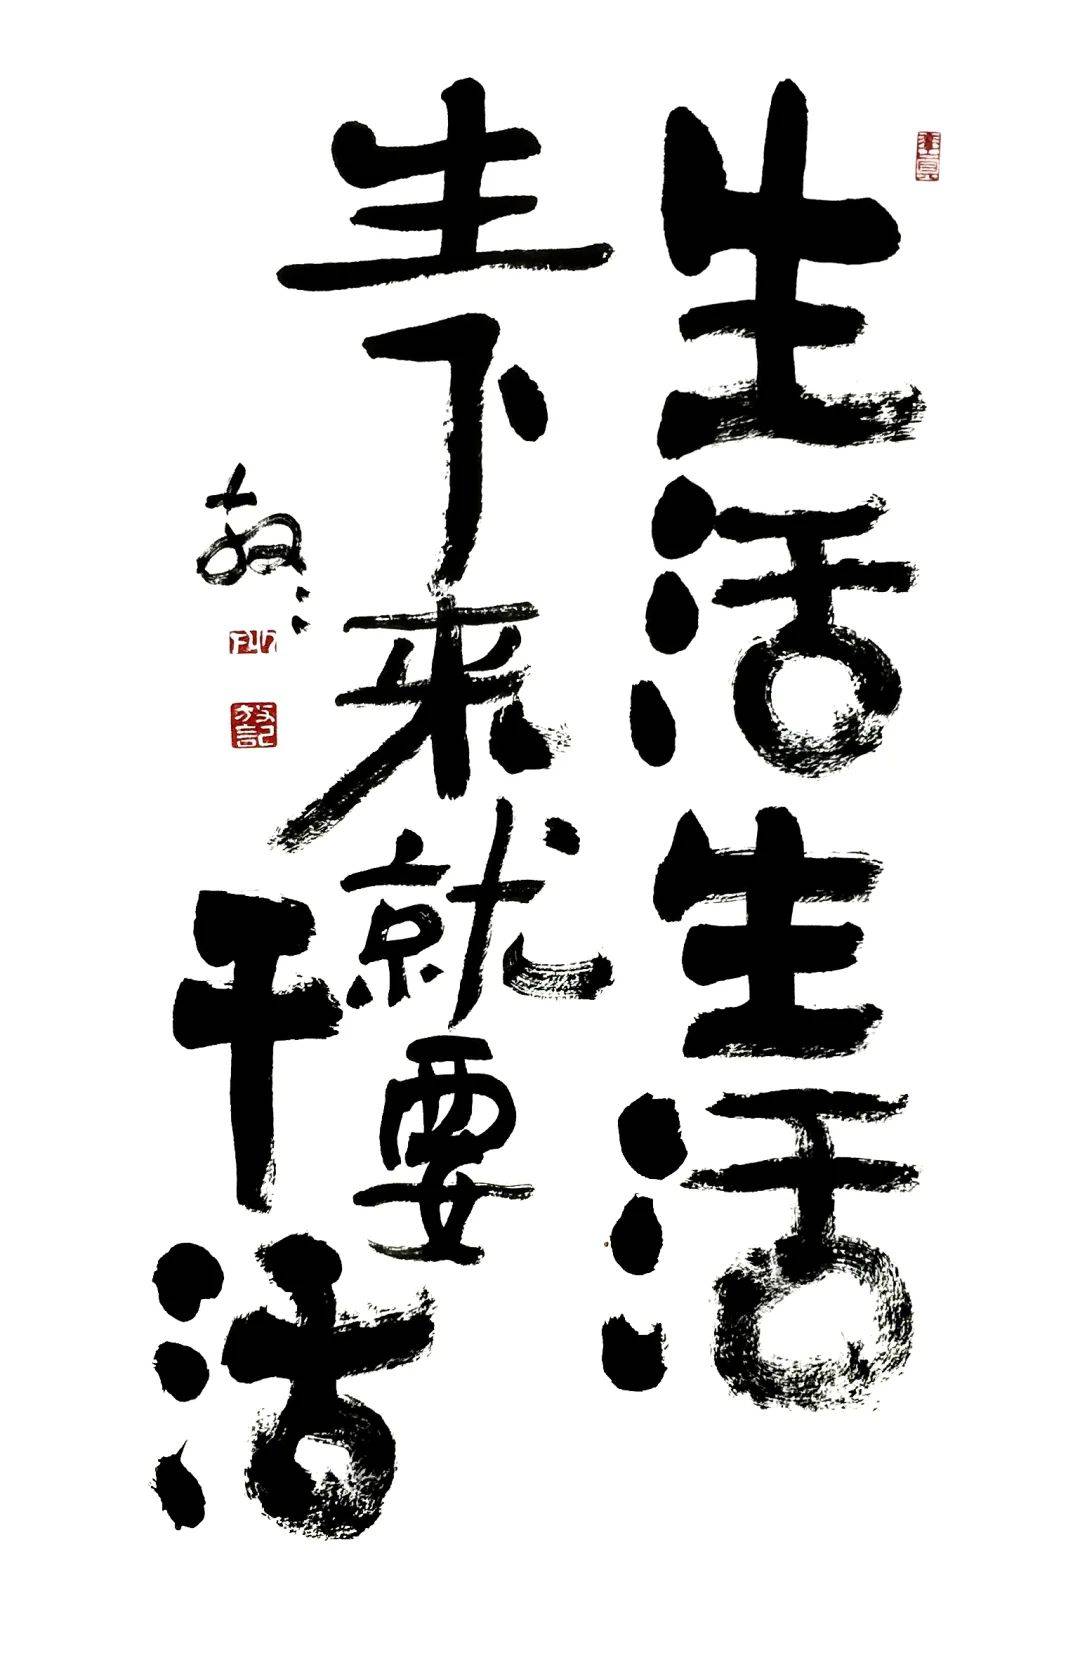 生活生活
生下来就要
干活